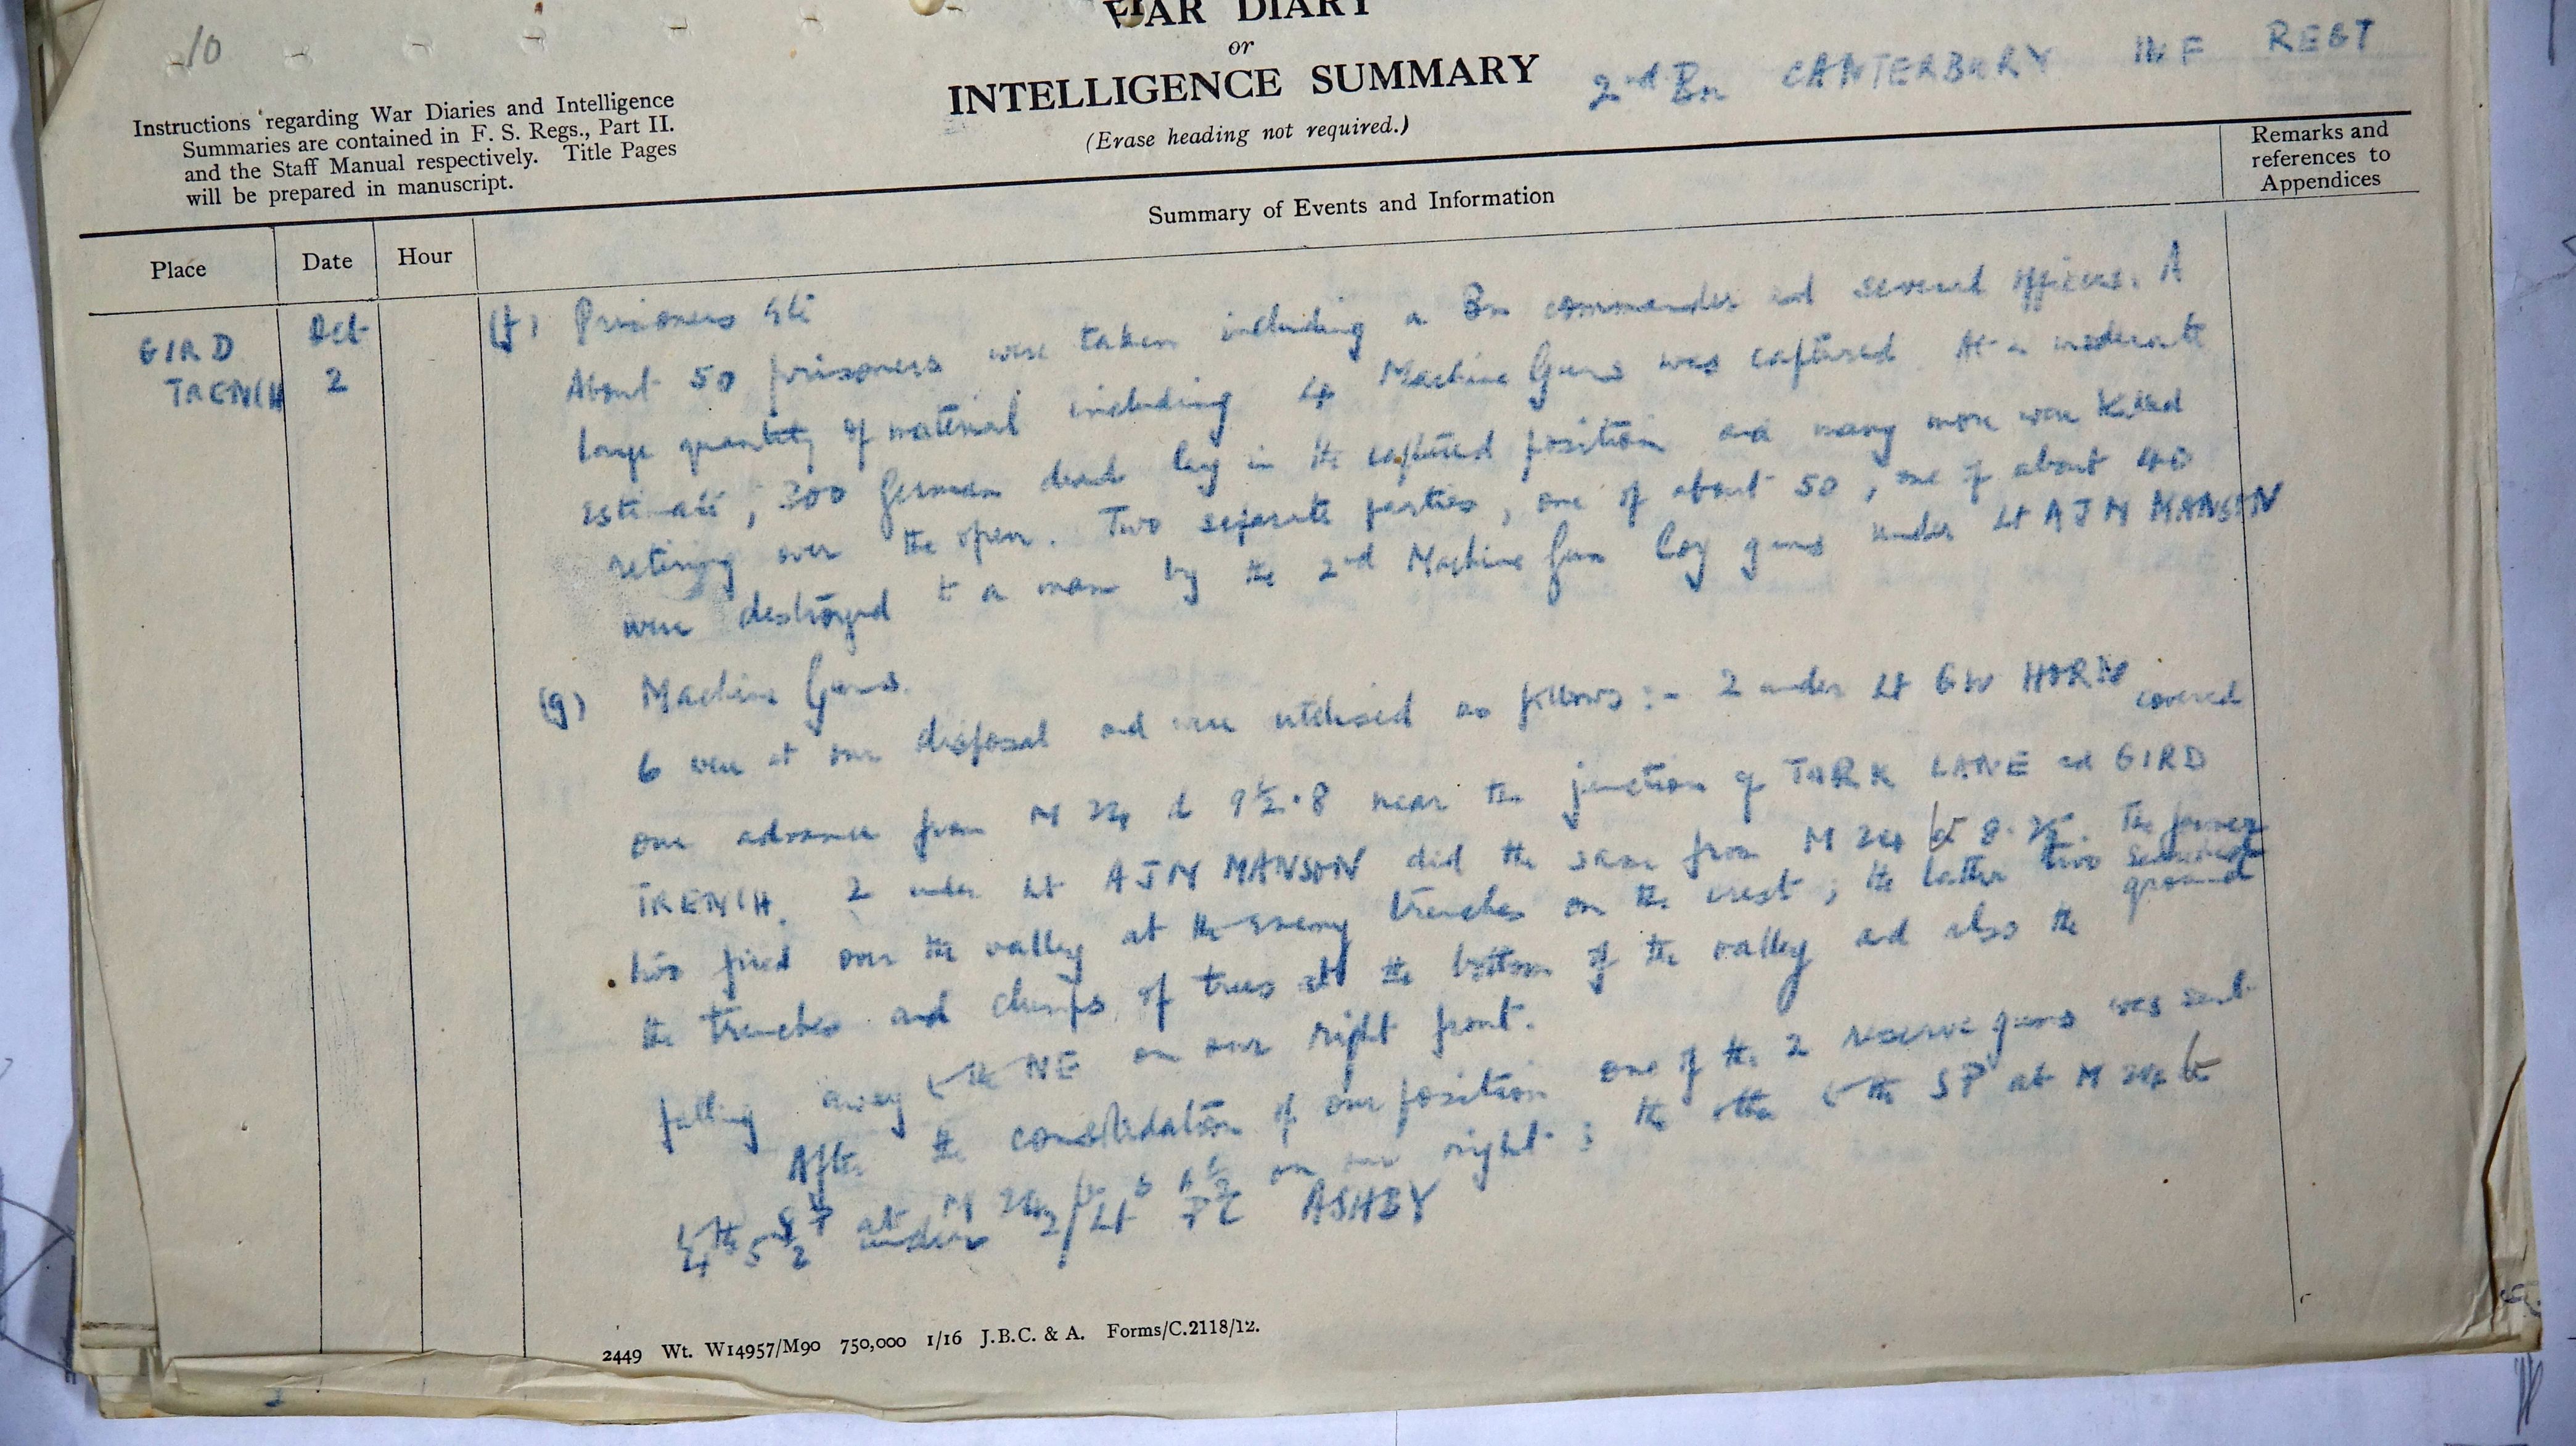 10
WAR DIARY
or
INTELLIGENCE SUMMARY
(Erase heading not required.)
2nd Bn CANTERBURY INF REGT
Instructions regarding War Diaries and Intelligence
Summaries are contained in F. S. Regs., Part II.
and the Staff Manual respectively. Title Pages
will be prepared in manuscript.
Remarks and
references to
Appendices
Summary of Events and Information
Place
Date
Hour
GIRD
TRENCH
Oct
2
(f) Prisoners etc
About 50 prisoners were taken including a Bn commander and several officers. A
large quantity of material including 4 Machine Guns was captured. At a moderate
estimate, 300 German dead lay in the captured position and many more were killed
retiring over the open. Two separate parties, one of about 50, one of about 40
were destroyed to a man by the 2nd Machine Gun Coy guns under Lt A J M MANSON
(g) Machine Guns.
6 were at our disposal and were utilised as follows :- 2 under Lt G W HORN covered
our advance from M 24 d 9½.8 near the junction of TURK LANE and GIRD
TRENCH. 2 under Lt A J M MANSON did the same from M 24 8. The former
two fired over the valley at the enemy trenches on the crest ; the latter two searched
the trenches and clumps of trees at the bottom of the valley and also the ground
falling away to the NE on our right front.
After the consolidation of our position one of the 2 reserve guns was sent
to the SP at M 24 on our right ; the other to the SP at M 24
under 2/Lt P C ASHBY
2449 Wt. W14957/M90 750,000 1/16 J.B.C. & A. Forms/C.2118/12.